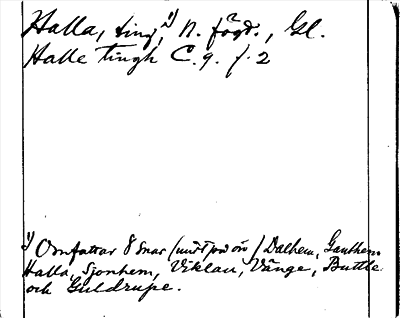 Halla, ting, 1) N. fögd., Gl.
Halle tingh C. 9. f. 2
1) Omfattar 8 snar (mitt på ön) Dalhem, Ganthem
Halla, Sjonhem, Viklau, Vänge, Buttle
och Guldrupe.